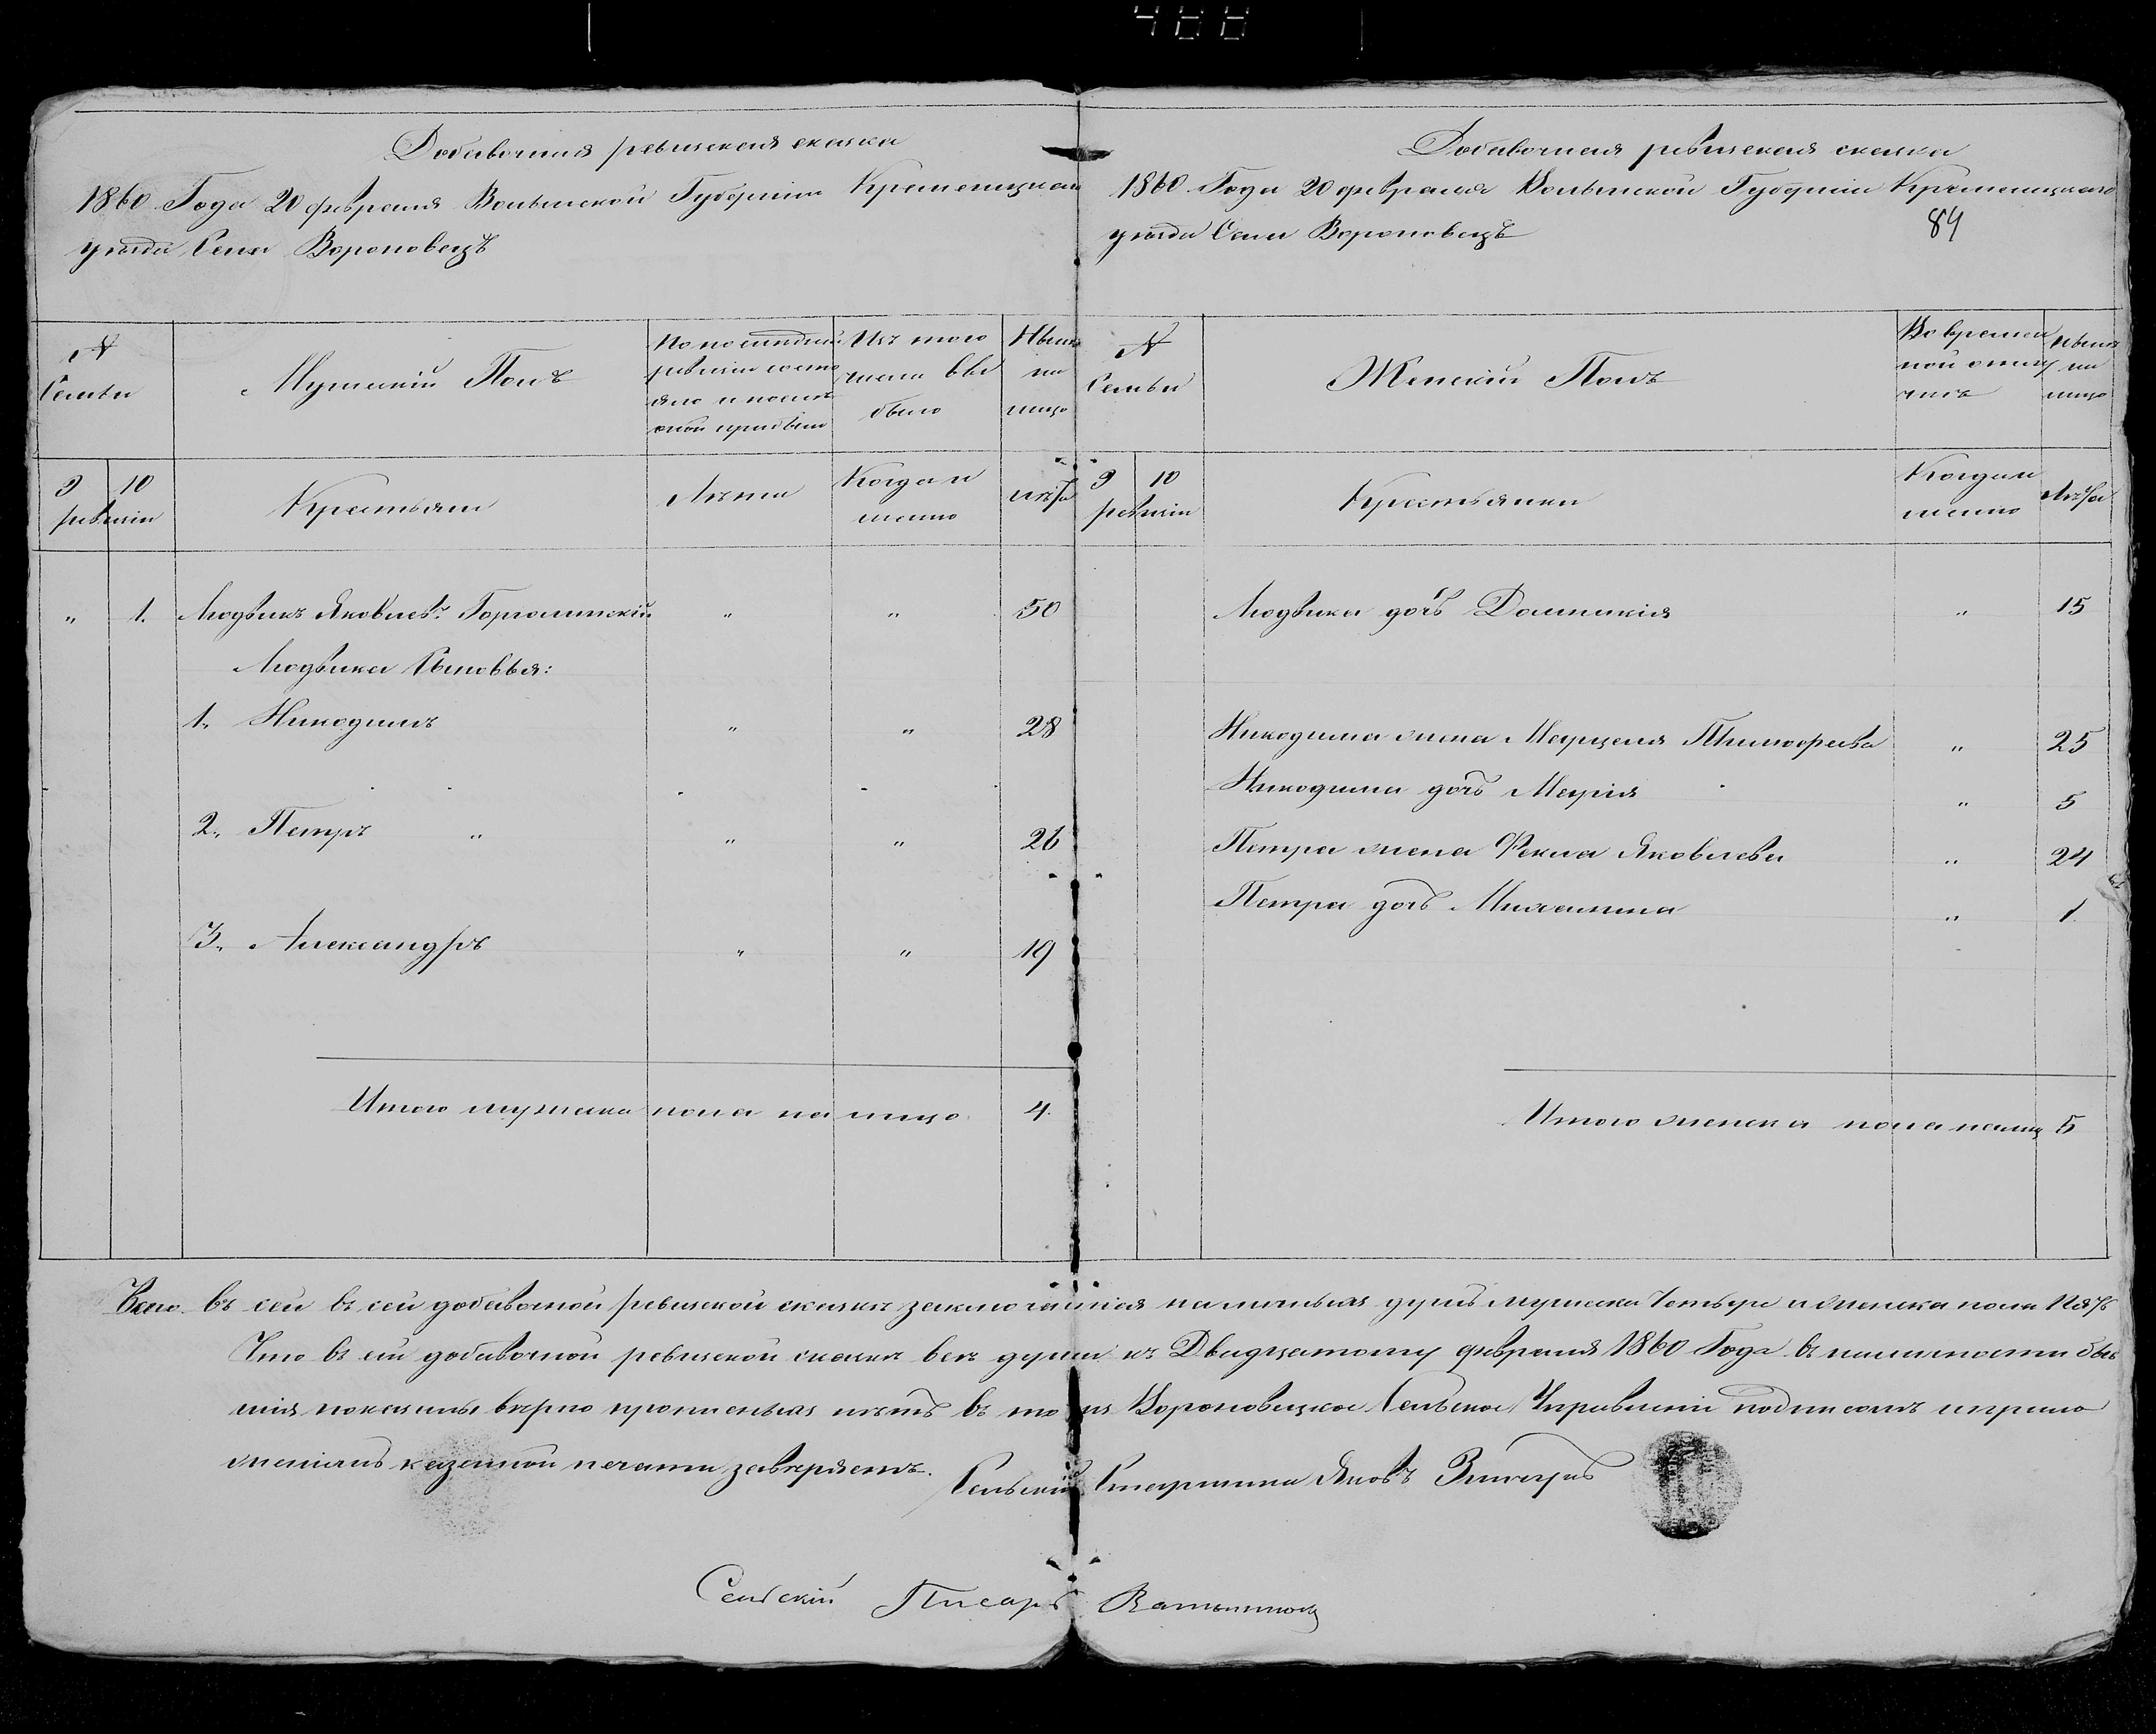 488
Добавочная ревизская сказка
1860 Года 20 февраля Волынской Губерніи Кременецкаго
уѣзда Села Вороновецъ
№
Семьи
Мужескій Полъ
По последней
ревизіи состо
яло и послѣ
оной прибыло
Изъ того
числа выб
было
Нынѣ
на
лицо
9 10
ревизіи
Крестьяне
Лѣта
Когда и
менно
лѣта
" 1. Людвикъ Яковлевъ " " 50
Людвика Сыновья:
1. Никодимъ " " 28
2. Петръ " " " 26
3. Александръ " " 19
Итого мужеска пола на лицо 4.
Добавочная ревизская сказка
1860 Года 20 февраля Волынской Губерніи Кременецкаго
уѣзда Села Вороновецъ
84
№
Семьи
Женскій Полъ
Во времен
ной отлу
чкѣ
нынѣ
на
лицо
9 10
ревизіи
Крестьянки
Когда и
менно
Лѣта
Людвика дочь Доминикія " 15
Никодима жена Марцеля Тимофеева " 25
Никодима дочь Марія " 5
Петра жена Фекла Яковлева " 24
Петра дочь Михалина " 1.
Итого женска пола налиц 5
Всего въ сей въ сей добавочной ревизской сказкѣ заключаются наличныхъ душъ мужеска Четыре и Женска пола Пять
Что въ сей добавочной ревизской сказкѣ все души къ Двадцатому февраля 1860 Года въ наличности быв
шія показаны верно прописныхъ нѣтъ въ томъ Вороновецкое Сельское Управленіе подписомъ и прило
женіемъ казенной печати заверяетъ.
Сельскій Старшина Яковъ
Сельскій Писарь